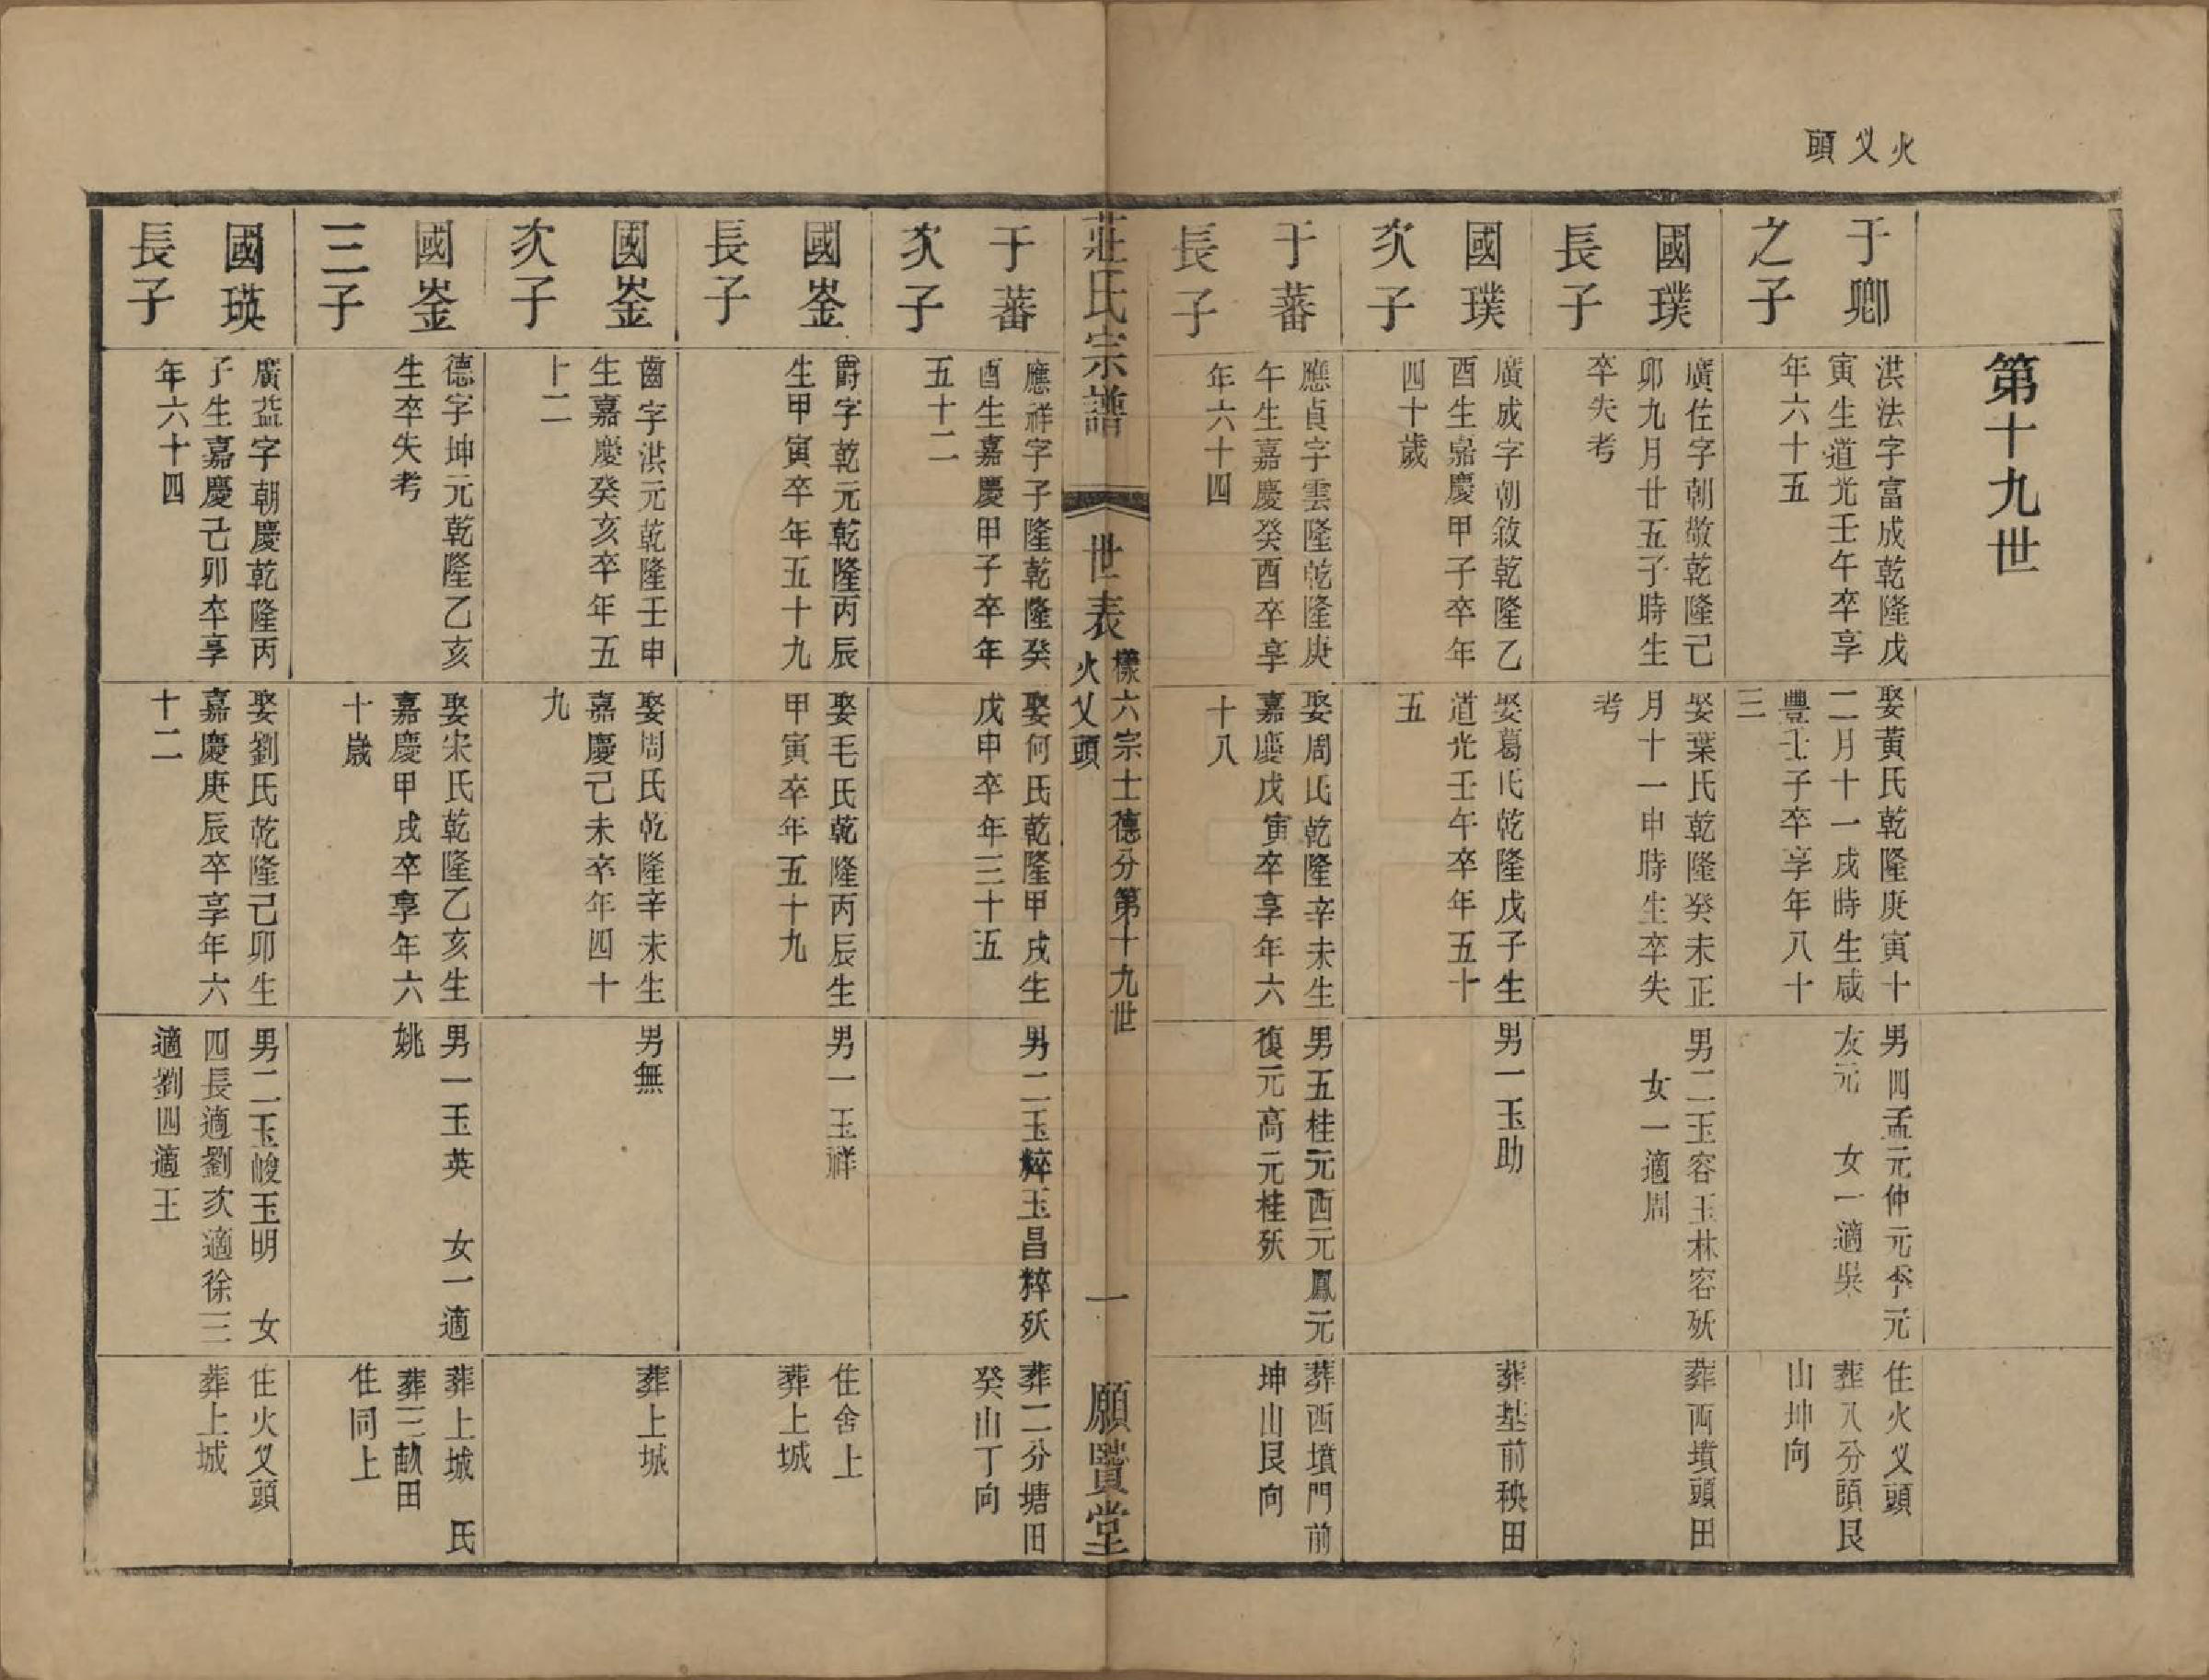 火义頭
第十九世
于卿
之子
洪法字富成乾隆戊
寅生道光壬午卒享
年六十五
娶黃氏乾隆庚寅十
二月十一戌時生咸
豐壬子卒享年八十
三
男四孟元仲元季元
友元　女一適吳
住火义頭
葬八分頭艮
山坤向
國璞
長子
廣佐字朝敬乾隆己
卯九月廿五子時生
卒失考
娶葉氏乾隆癸未正
月十一申時生卒失
考
男二玉容玉林容殀
女一適周
葬西墳頭田
國璞
次子
廣成字朝敘乾隆乙
酉生嘉慶甲子卒年
四十歲
娶葛氏乾隆戊子生
道光壬午卒年五十
五
男一玉助
葬基前秧田
于蕃
長子
應貞字雲隆乾隆庚
午生嘉慶癸酉卒享
年六十四
娶周氏乾隆辛未生
嘉慶戊寅卒享年六
十八
男五桂元西元鳳元
復元高元桂殀
葬西墳門前
坤山艮向
莊氏宗譜
世表
樣六宗士德分第十九世
火义頭
一
願賢堂
于蕃
次子
應祥字子隆乾隆癸
酉生嘉慶甲子卒年
五十二
娶何氏乾隆甲戌生
戊申卒年三十五
男二玉粹玉昌粹殀
葬二分塘田
癸山丁向
國崟
長子
爵字乾元乾隆丙辰
生甲寅卒年五十九
娶毛氏乾隆丙辰生
甲寅卒年五十九
男一玉祥
住舍上
葬上城
國崟
次子
齒字洪元乾隆壬申
生嘉慶癸亥卒年五
十二
娶周氏乾隆辛未生
嘉慶己未卒年四十
九
男無
葬上城
國崟
三子
德字坤元乾隆乙亥
生卒失考
娶宋氏乾隆乙亥生
嘉慶甲戌卒享年六
十歲
男一玉英　女一適
姚
葬上城　氏
葬三畝田
住同上
國瑛
長子
廣益字朝慶乾隆丙
子生嘉慶己卯卒享
年六十四
娶劉氏乾隆己卯生
嘉慶庚辰卒享年六
十二
男二玉峻玉明　女
四長適劉次適徐三
適劉四適王
住火义頭
葬上城